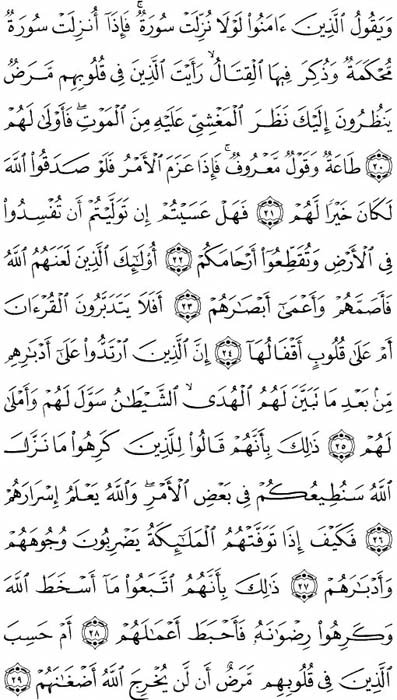 وَيَقُولُ ٱلَّذِينَ ءَامَنُوا۟ لَوْلَا نُزِّلَتْ سُورَةٌ ۖ فَإِذَآ أُنزِلَتْ سُورَةٌ
مُّحْكَمَةٌ وَذُكِرَ فِيهَا ٱلْقِتَالُ ۙ رَأَيْتَ ٱلَّذِينَ فِى قُلُوبِهِم مَّرَضٌ
يَنظُرُونَ إِلَيْكَ نَظَرَ ٱلْمَغْشِىِّ عَلَيْهِ مِنَ ٱلْمَوْتِ ۖ فَأَوْلَىٰ لَهُمْ
﴿٢٠﴾ طَاعَةٌ وَقَوْلٌ مَّعْرُوفٌ ۚ فَإِذَا عَزَمَ ٱلْأَمْرُ فَلَوْ صَدَقُوا۟ ٱللَّهَ
لَكَانَ خَيْرًا لَّهُمْ ﴿٢١﴾ فَهَلْ عَسَيْتُمْ إِن تَوَلَّيْتُمْ أَن تُفْسِدُوا۟
فِى ٱلْأَرْضِ وَتُقَطِّعُوٓا۟ أَرْحَامَكُمْ ﴿٢٢﴾ أُو۟لَٰٓئِكَ ٱلَّذِينَ لَعَنَهُمُ ٱللَّهُ
فَأَصَمَّهُمْ وَأَعْمَىٰٓ أَبْصَٰرَهُمْ ﴿٢٣﴾ أَفَلَا يَتَدَبَّرُونَ ٱلْقُرْءَانَ
أَمْ عَلَىٰ قُلُوبٍ أَقْفَالُهَآ ﴿٢٤﴾ إِنَّ ٱلَّذِينَ ٱرْتَدُّوا۟ عَلَىٰٓ أَدْبَٰرِهِم
مِّنۢ بَعْدِ مَا تَبَيَّنَ لَهُمُ ٱلْهُدَى ۙ ٱلشَّيْطَٰنُ سَوَّلَ لَهُمْ وَأَمْلَىٰ
لَهُمْ ﴿٢٥﴾ ذَٰلِكَ بِأَنَّهُمْ قَالُوا۟ لِلَّذِينَ كَرِهُوا۟ مَا نَزَّلَ
ٱللَّهُ سَنُطِيعُكُمْ فِى بَعْضِ ٱلْأَمْرِ ۖ وَٱللَّهُ يَعْلَمُ إِسْرَارَهُمْ
﴿٢٦﴾ فَكَيْفَ إِذَا تَوَفَّتْهُمُ ٱلْمَلَٰٓئِكَةُ يَضْرِبُونَ وُجُوهَهُمْ
وَأَدْبَٰرَهُمْ ﴿٢٧﴾ ذَٰلِكَ بِأَنَّهُمُ ٱتَّبَعُوا۟ مَآ أَسْخَطَ ٱللَّهَ
وَكَرِهُوا۟ رِضْوَٰنَهُۥ فَأَحْبَطَ أَعْمَٰلَهُمْ ﴿٢٨﴾ أَمْ حَسِبَ
ٱلَّذِينَ فِى قُلُوبِهِم مَّرَضٌ أَن لَّن يُخْرِجَ ٱللَّهُ أَضْغَٰنَهُمْ ﴿٢٩﴾